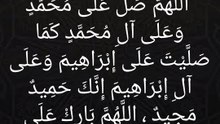 اللَّهُمَّ صَلِّ عَلَى مُحَمَّدٍ
وَعَلَى آلِ مُحَمَّدٍ كَمَا
صَلَّيْتَ عَلَى إِبْرَاهِيمَ وَعَلَى
آلِ إِبْرَاهِيمَ إِنَّكَ حَمِيدٌ
مَجِيدٌ ، اللَّهُمَّ بَارِكْ عَلَى